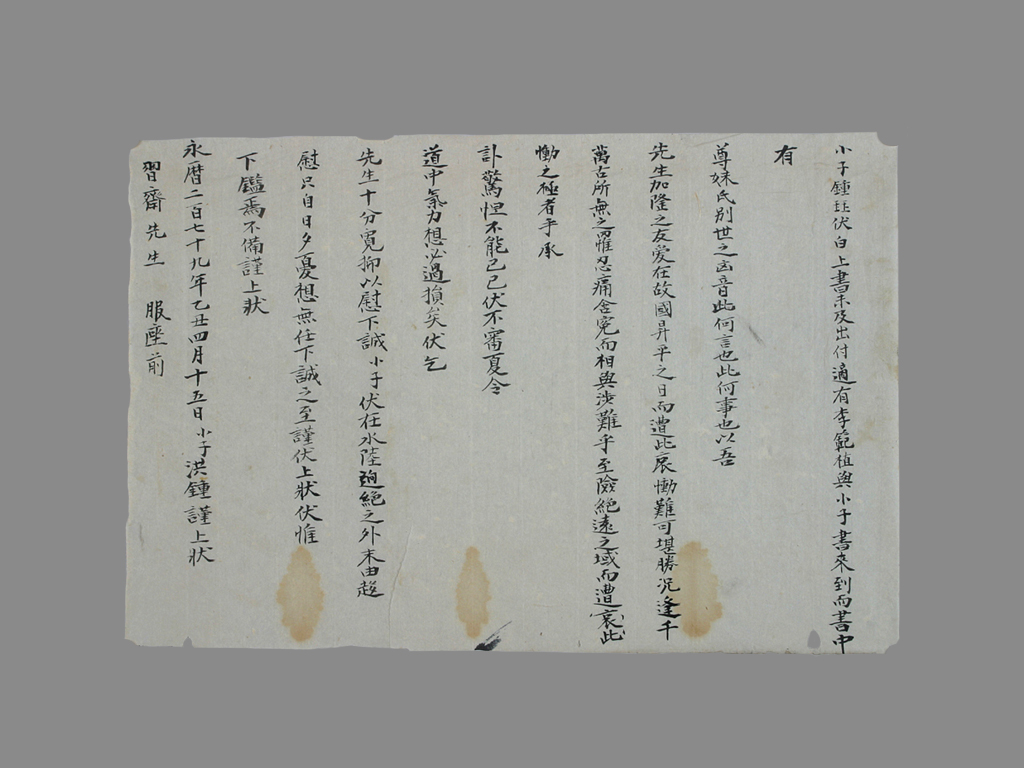 小子鍾珏伏白上書未及出付適有李範植與小子書來到而書中
有
尊妹氏別世之凶音此何言也此何事也以吾
先生加隆之友爱在故國昇平之日而遭此哀慟難可堪勝况逢千
萬古所無之罹忍痛含寃而相與涉難乎至險絶遠之域而遭哀此
慟之極者乎承
訃驚怛不能已已伏不審夏令
道中氣力想必過損矣伏乞
先生十分寬抑以慰下誠小子伏在水陸逈絶之外末由趍
慰只自日夕憂想無任下誠之至謹伏上狀伏惟
下鑑焉不備謹上狀
永曆二百七十九年乙丑四月十五日小子洪鍾謹上狀
習齋先生 服座前